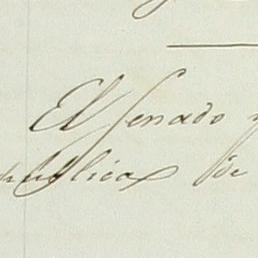 El Senado y
publica de